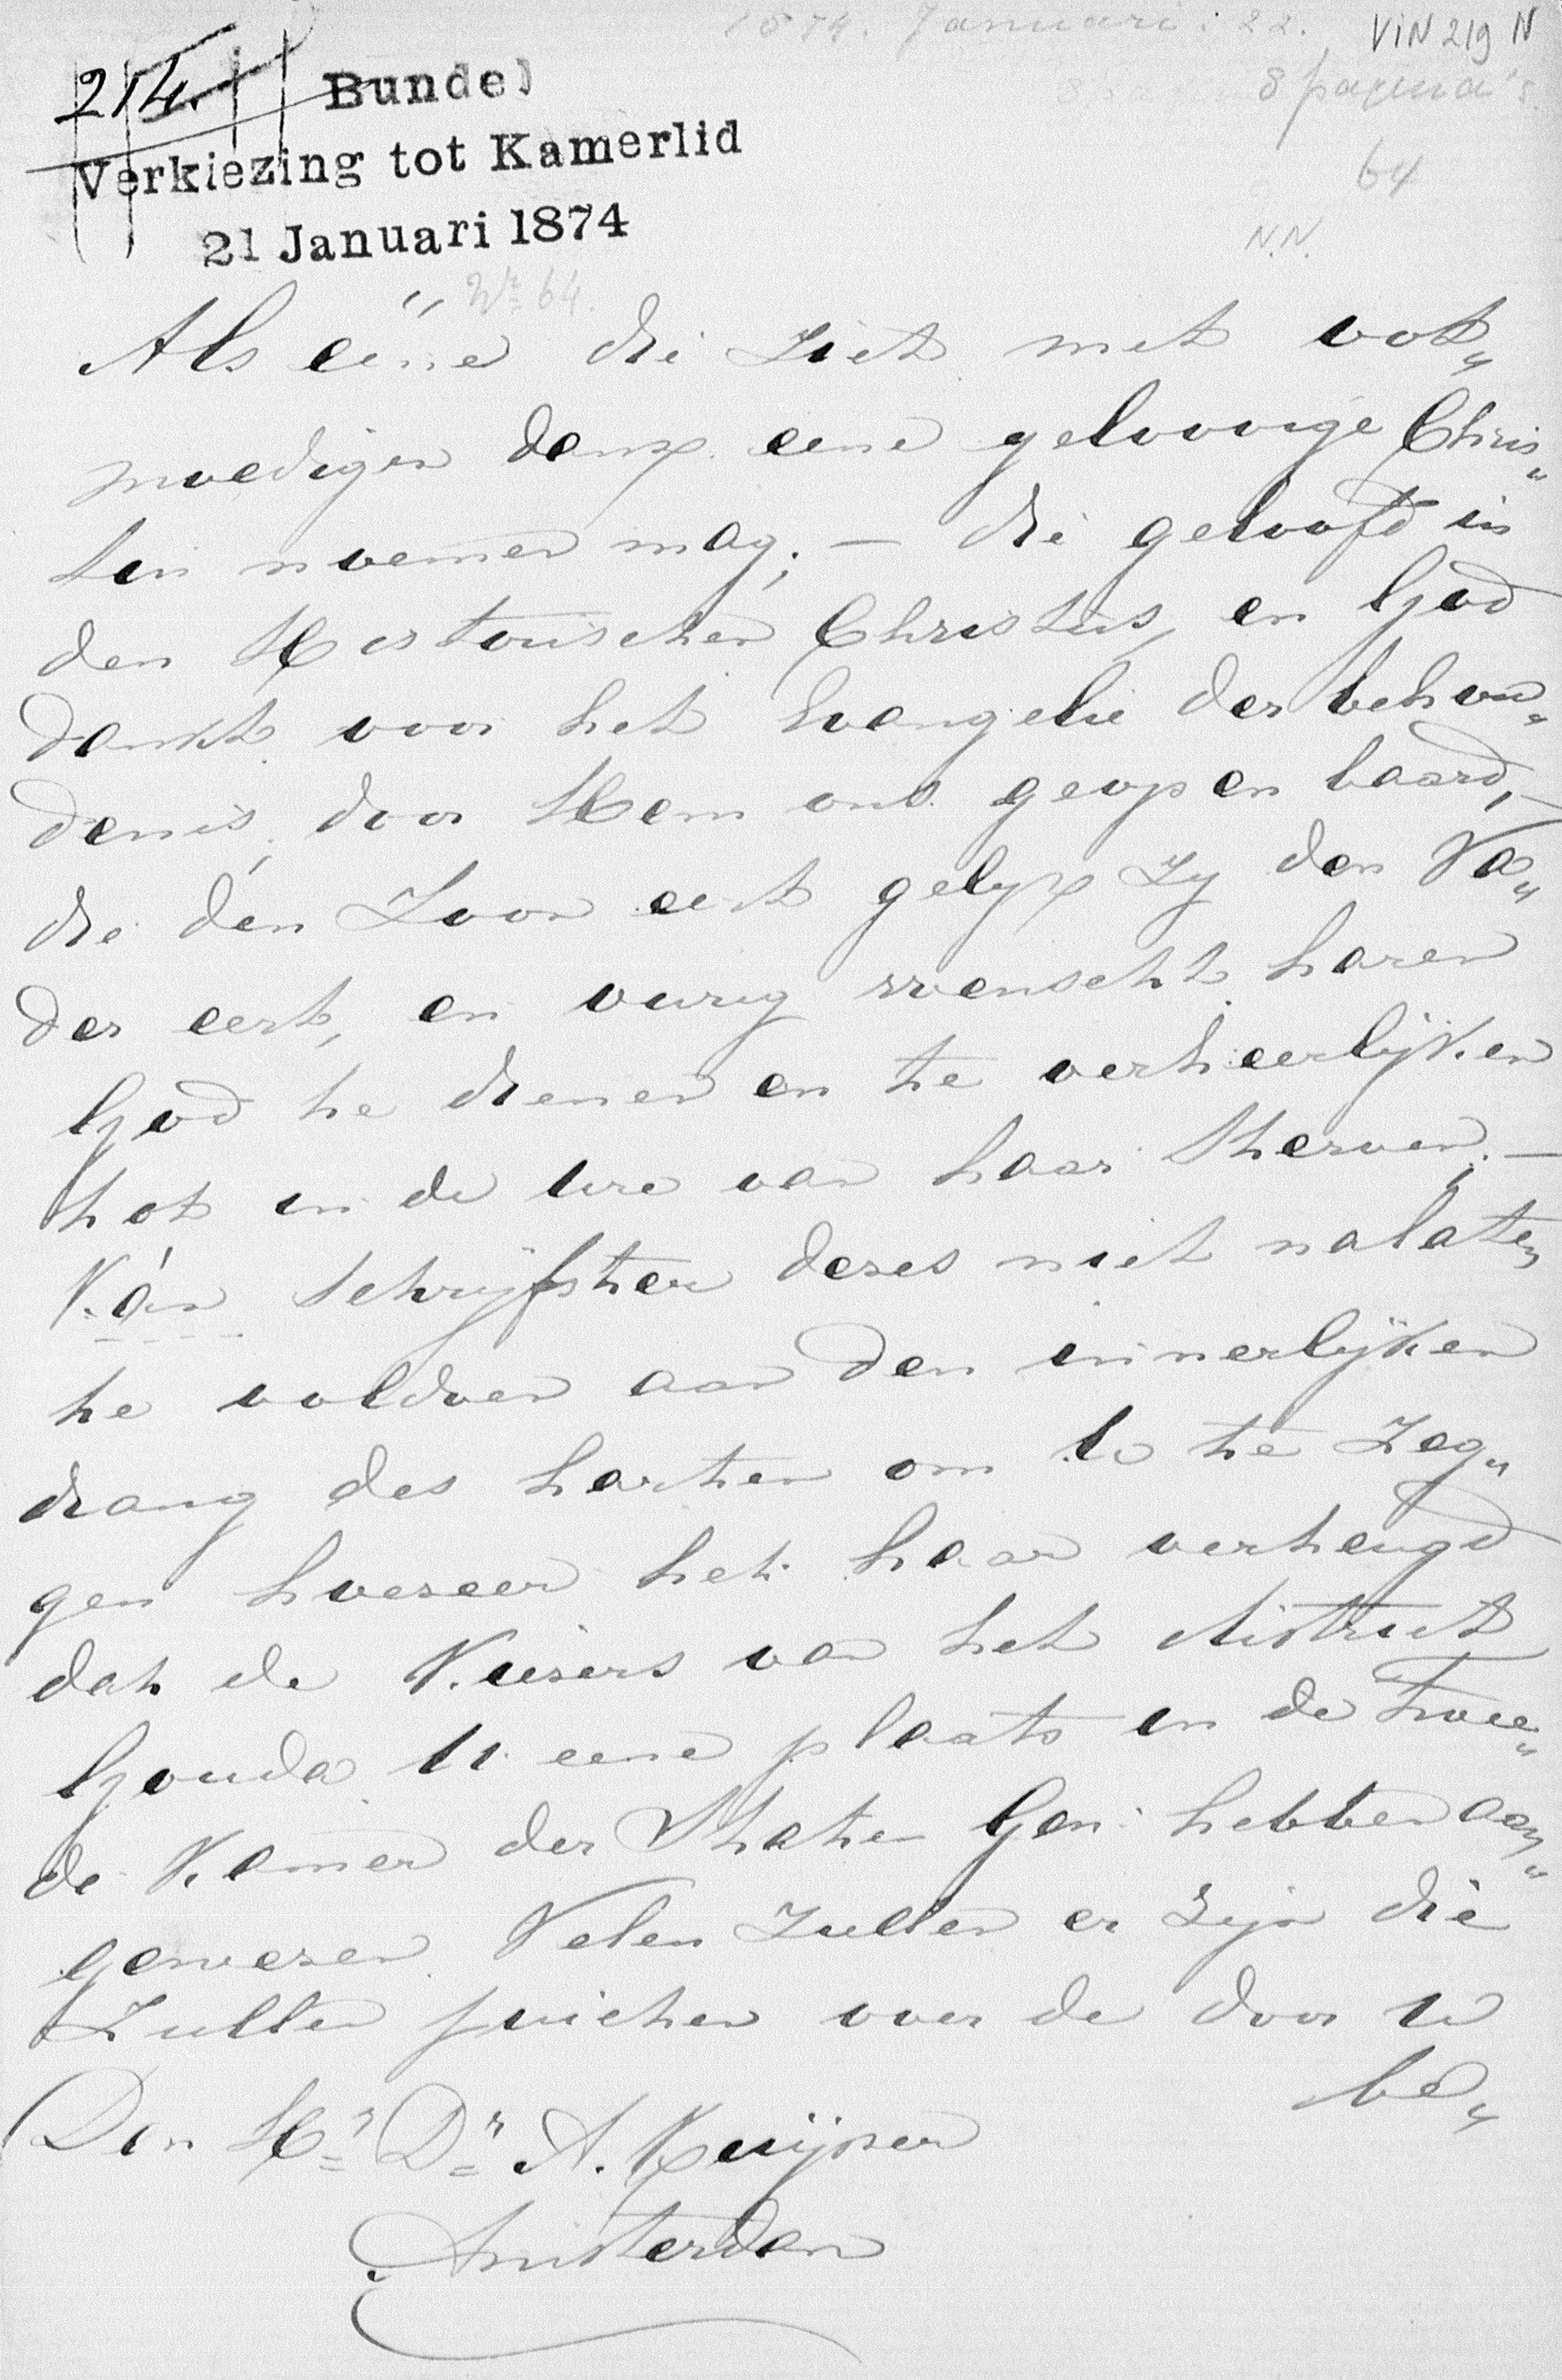 1874. Januari: 22. VIN 219 N
214. Bundel
8 pagina's.
Verkiezing tot Kamerlid
64
21 Januari 1874
N.N.
Nr 64.
Als eéne die Ziet met oot„
moedigen dank eene geloovige Chris„
tin noemen mag; — die gelooft in
den Historischen Christus, en God
dankt voor het Evangelie der behou„
denis, door Hem ons geopenbaard, —
die dén Zoon eert gelyk Zy den Va„
der eert, en vurig wenscht haren
God te dienen en te verheerlijken
tot in de ure van haar Sterven; —
Kán Schrijfster dezes niet nalaten
te voldoen aan den innerlijken
drang des harten om U te Zeg„
gen hoezeer het haar verheugd
dat de Kiezers van het district
Gouda U eene plaats in de Twee„
de Kamer der Staten Gen: hebben aan„
gewezen. Velen Zullen er Zijn die
Zullen juichen over de door U
be„
Den Hr Dr A. Kuijper
Amsterdam